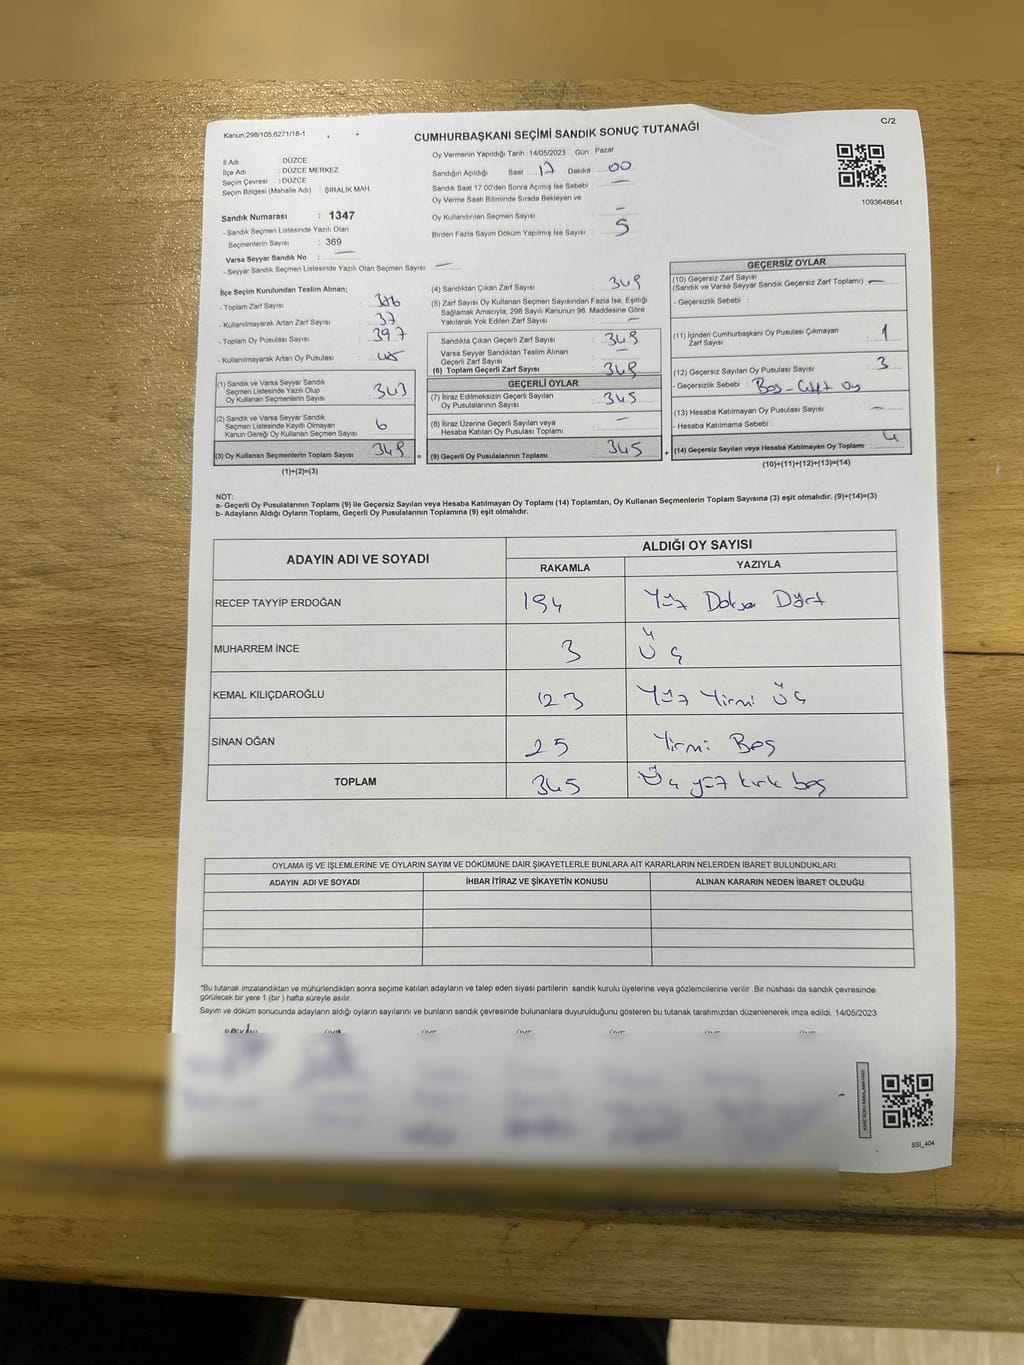 Kanun;298/105,6271/18-1
C/2
CUMHURBAŞKANI SEÇİMİ SANDIK SONUÇ TUTANAĞI
İl Adı : DÜZCE
İlçe Adı : DÜZCE MERKEZ
Seçim Çevresi : DÜZCE
Seçim Bölgesi (Mahalle Adı) : ŞIRALIK MAH.
Sandık Numarası : 1347
- Sandık Seçmen Listesinde Yazılı Olan
Seçmenlerin Sayısı : 369
Varsa Seyyar Sandık No : —
- Seyyar Sandık Seçmen Listesinde Yazılı Olan Seçmen Sayısı: —
Oy Vermenin Yapıldığı Tarih :14/05/2023 Gün : Pazar
Sandığın Açıldığı Saat : 17 Dakika : 00
Sandık Saat 17.00'den Sonra Açılmış İse Sebebi : —
Oy Verme Saati Bitiminde Sırada Bekleyen ve
Oy Kullandırılan Seçmen Sayısı : —
Birden Fazla Sayım Döküm Yapılmış İse Sayısı : 5
1093648641
İlçe Seçim Kurulundan Teslim Alınan;
- Toplam Zarf Sayısı :
- Kullanılmayarak Artan Zarf Sayısı : 37
- Toplam Oy Pusulası Sayısı : 397
- Kullanılmayarak Artan Oy Pusulası :
(1) Sandık ve Varsa Seyyar Sandık
Seçmen Listesinde Yazılı Olup
Oy Kullanan Seçmenlerin Sayısı : 343
(2) Sandık ve Varsa Seyyar Sandık
Seçmen Listesinde Kayıtlı Olmayan
Kanun Gereği Oy Kullanan Seçmen Sayısı : 6
(3) Oy Kullanan Seçmenlerin Toplam Sayısı : 349 =
(1)+(2)=(3)
(4) Sandıktan Çıkan Zarf Sayısı : 349
(5) Zarf Sayısı Oy Kullanan Seçmen Sayısından Fazla İse, Eşitliği
Sağlamak Amacıyla; 298 Sayılı Kanunun 98. Maddesine Göre
Yakılarak Yok Edilen Zarf Sayısı : —
Sandıkta Çıkan Geçerli Zarf Sayısı : 349
Varsa Seyyar Sandıktan Teslim Alınan
Geçerli Zarf Sayısı : —
(6) Toplam Geçerli Zarf Sayısı : 349
GEÇERLİ OYLAR
(7) İtiraz Edilmeksizin Geçerli Sayılan
Oy Pusulalarının Sayısı : 345
(8) İtiraz Üzerine Geçerli Sayılan veya
Hesaba Katılan Oy Pusulası Toplamı : —
(9) Geçerli Oy Pusulalarının Toplamı : 345 +
GEÇERSİZ OYLAR
(10) Geçersiz Zarf Sayısı
(Sandık ve Varsa Seyyar Sandık Geçersiz Zarf Toplamı) : —
- Geçersizlik Sebebi :
(11) İçinden Cumhurbaşkanı Oy Pusulası Çıkmayan
Zarf Sayısı : 1
(12) Geçersiz Sayılan Oy Pusulası Sayısı : 3
- Geçersizlik Sebebi : Boş - Çift Oy
(13) Hesaba Katılmayan Oy Pusulası Sayısı : —
- Hesaba Katılmama Sebebi :
(14) Geçersiz Sayılan veya Hesaba Katılmayan Oy Toplamı : 4
(10)+(11)+(12)+(13)=(14)
NOT:
a- Geçerli Oy Pusulalarının Toplamı (9) ile Geçersiz Sayılan veya Hesaba Katılmayan Oy Toplamı (14) Toplamları, Oy Kullanan Seçmenlerin Toplam Sayısına (3) eşit olmalıdır. (9)+(14)=(3)
b- Adayların Aldığı Oyların Toplamı, Geçerli Oy Pusulalarının Toplamına (9) eşit olmalıdır.
ADAYIN ADI VE SOYADI ALDIĞI OY SAYISI
RAKAMLA YAZIYLA
RECEP TAYYİP ERDOĞAN 194 Yüz Doksan Dört
MUHARREM İNCE 3 Üç
KEMAL KILIÇDAROĞLU 123 Yüz Yirmi Üç
SİNAN OĞAN 25 Yirmi Beş
TOPLAM 345 Üç yüz kırk beş
OYLAMA İŞ VE İŞLEMLERİNE VE OYLARIN SAYIM VE DÖKÜMÜNE DAİR ŞİKAYETLERLE BUNLARA AİT KARARLARIN NELERDEN İBARET BULUNDUKLARI
ADAYIN ADI VE SOYADI İHBAR İTİRAZ VE ŞİKAYETİN KONUSU ALINAN KARARIN NEDEN İBARET OLDUĞU
*Bu tutanak imzalandıktan ve mühürlendikten sonra seçime katılan adayların ve talep eden siyasi partilerin sandık kurulu üyelerine veya gözlemcilerine verilir. Bir nüshası da sandık çevresinde
görülecek bir yere 1 (bir ) hafta süreyle asılır.
Sayım ve döküm sonucunda adayların aldığı oyların sayılarını ve bunların sandık çevresinde bulunanlara duyurulduğunu gösteren bu tutanak tarafımızdan düzenlenerek imza edildi. 14/05/2023
SSI_404